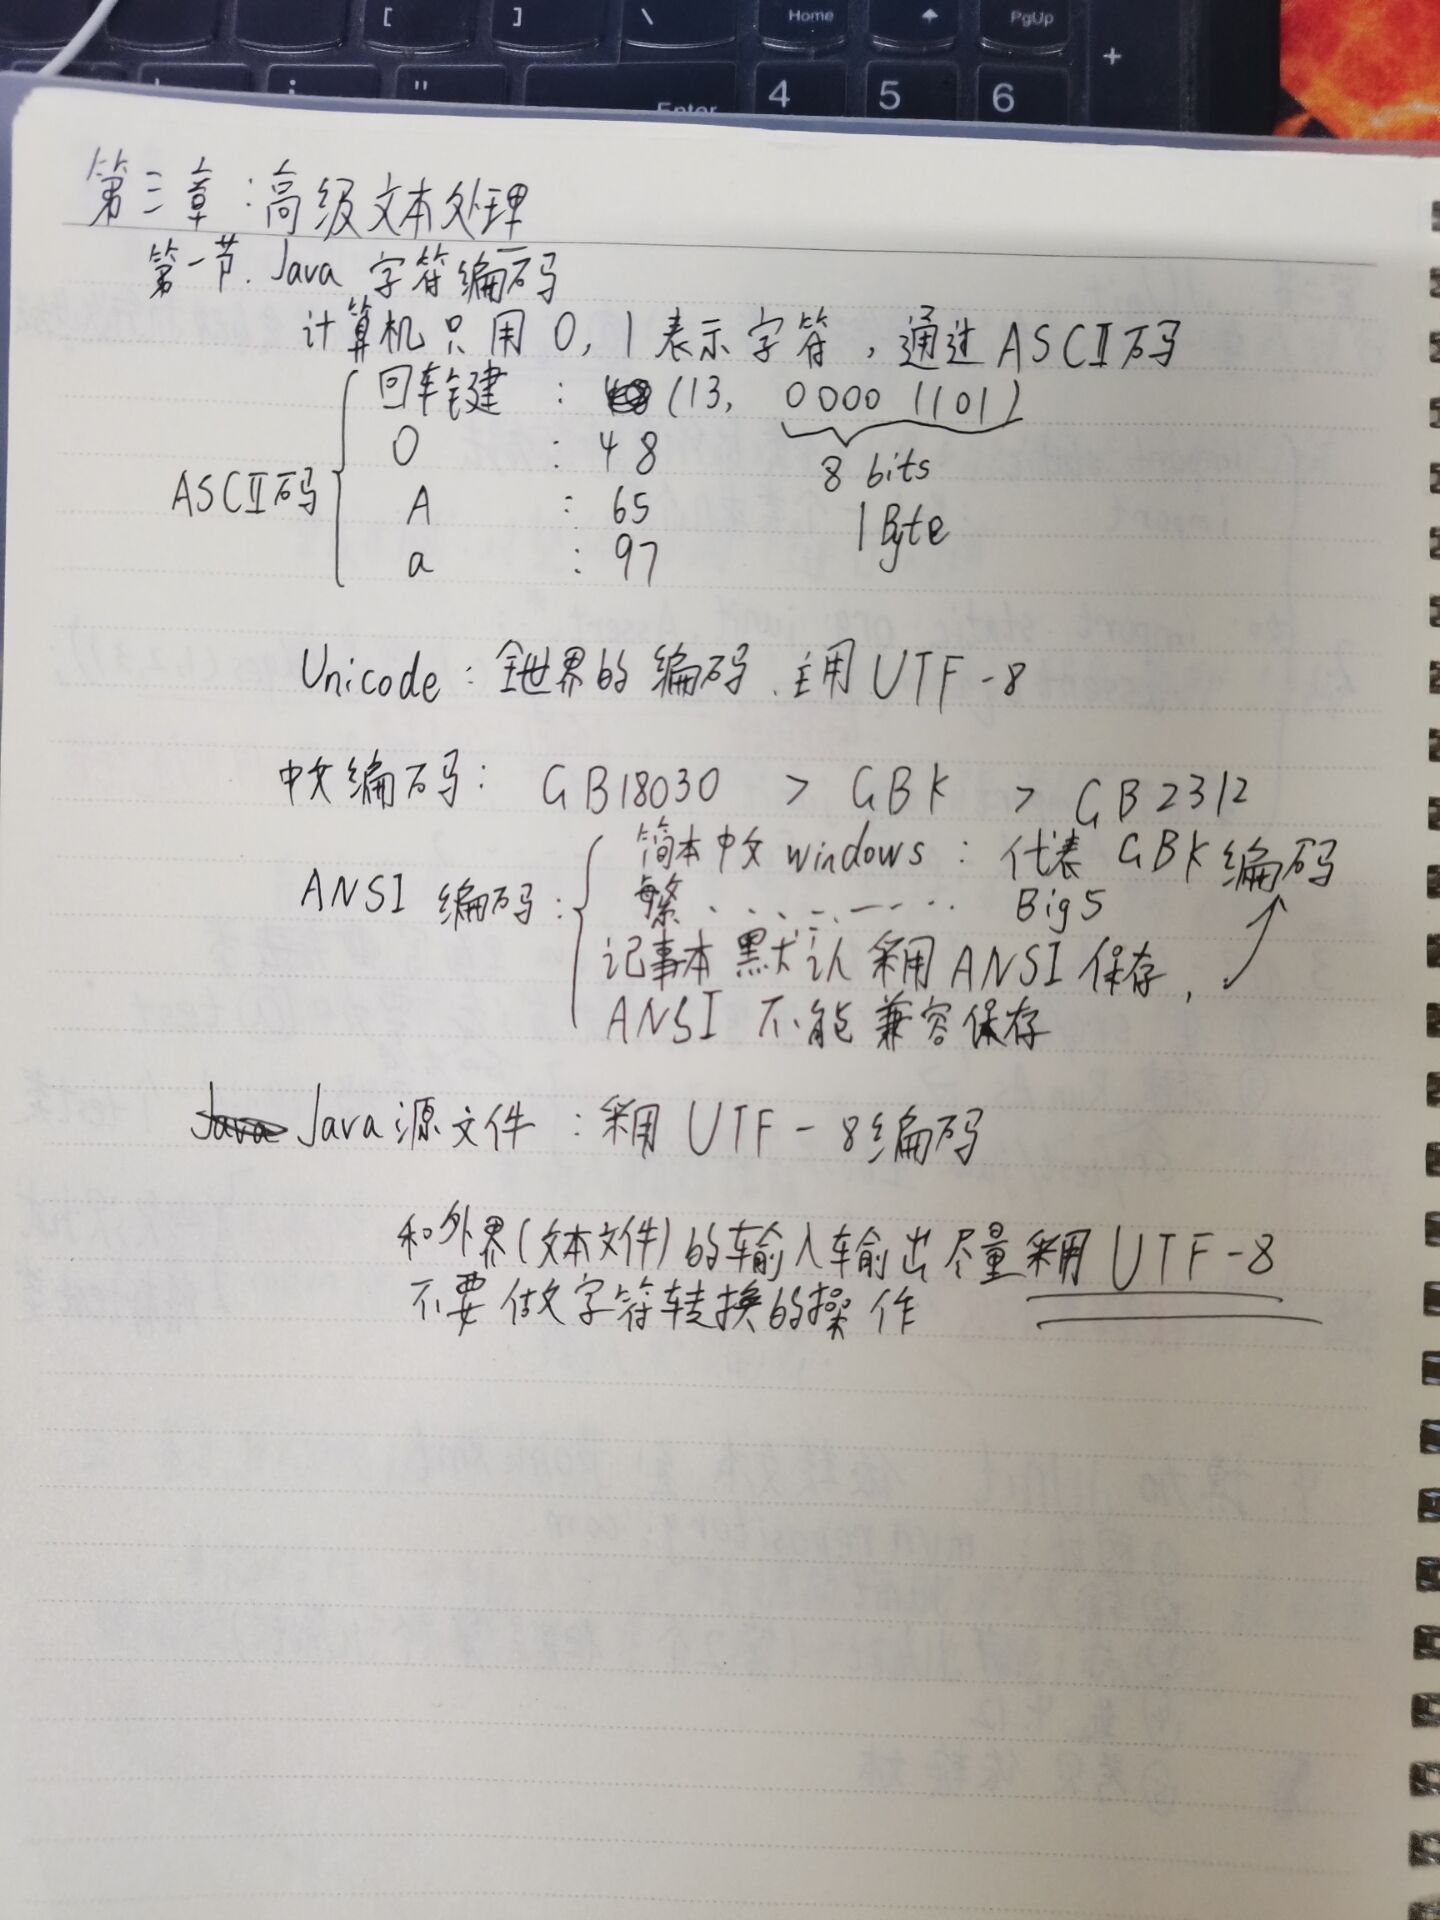 [
]
\
Home
PgUp
+
"
Enter
4
5
6
第三章:高级文本处理
第一节. Java 字符编码
计算机只用 0, 1 表示字符, 通过 ASCII 码
回车键 : (13, 0000 1101)
0 : 48
8 bits
ASCII码
A : 65
1 Byte
a : 97
Unicode: 全世界的编码、主用 UTF-8
中文编码: GB18030 > GBK > GB2312
ANSI 编码:
简体中文 windows: 代表 GBK 编码
繁 . . . . . . . . Big5
记事本 默认 采用 ANSI 保存,
ANSI 不能 兼容保存
Java Java 源文件 : 采用 UTF-8编码
和外界(文本文件)的输入输出尽量采用 UTF-8
不要做字符转换的操作